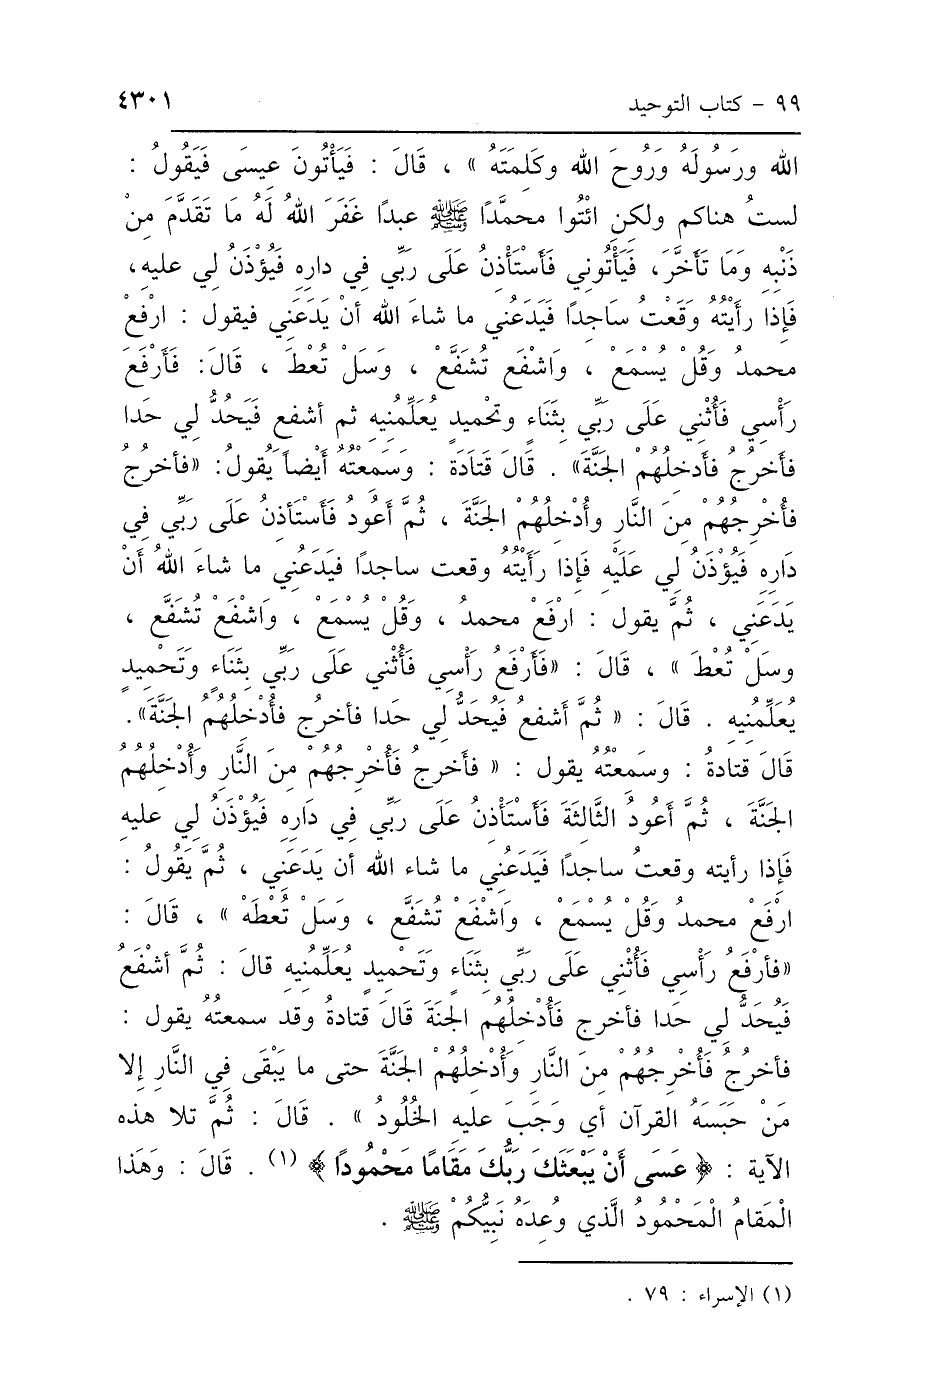 ٩٩ - كتاب التوحيد ٤٣٠١
الله ورَسُولَهُ وَرُوحَ الله وكَلِمَتَهُ » ، قَالَ : فَيَأْتُونَ عِيسَى فَيَقُولُ :
لستُ هناكم ولكنِ ائْتُوا محمَّدًا ﷺ عبدًا غَفَرَ اللهُ لَهُ مَا تَقَدَّمَ مِنْ
ذَنْبِهِ وَمَا تَأَخَّرَ، فَيَأْتُونِي فَأَسْتَأْذِنُ عَلَى رَبِّي فِي دارِهِ فَيُؤْذَنُ لي عليهِ،
فَإِذا رأَيْتُهُ وَقَعْتُ سَاجِدًا فَيَدَعُنِي ما شاءَ الله أنْ يَدَعَنِي فيقول : ارْفَعْ
محمدُ وَقُلْ يُسْمَعْ ، وَاشْفَعْ تُشَفَّعْ ، وَسَلْ تُعْطَ ، قَالَ: فَأَرْفَعُ
رَأْسِي فَأُثْنِي عَلَى رَبِّي بِثَنَاءٍ وتَحْمِيدٍ يُعَلِّمُنِيهِ ثم أشفع فَيَحُدُّ لِي حَدا
فأَخرُجُ فأُدخلُهُمْ الجَنَّةَ» . قَالَ قَتَادَة : وَسَمِعْتُهُ أيْضاً يَقُولُ: «فأخرجُ
فأُخْرِجُهُمْ مِنَ النَّارِ وأُدْخِلُهُمْ الجَنَّةَ ، ثُمَّ أَعُودُ فَأَسْتَأذِنُ عَلَى رَبِّي فِي
دَارِهِ فَيُؤْذَنُ لِي عَلَيْهِ فَإِذا رَأَيْتُهُ وقعت ساجدًا فَيَدَعُنِي ما شاءَ اللهُ أَنْ
يَدَعَنِي ، ثُمَّ يقول : ارْفَعْ محمدُ ، وَقُلْ يُسْمَعْ ، وَاشْفَعْ تُشَفَّعْ ،
وسَلْ تُعْطَ » ، قَالَ : «فَأَرْفَعُ رَأْسِي فَأُثْنِي عَلَى رَبِّي بِثَنَاءٍ وَتَحْمِيدٍ
يُعَلِّمُنِيهِ . قَالَ : « ثُمَّ أشفعُ فَيَحُدُّ لي حَدا فأخرُج فأُدْخلُهُمُ الجَنَّةَ».
قَالَ قتادةُ : وسَمِعْتُهُ يقول : « فأخرجُ فَأُخْرِجُهُمْ مِنَ النَّارِ وَأُدْخِلُهُم
الجَنَّةَ ، ثُمَّ أعُودُ الثَّالثَةَ فَأسْتَأْذِنُ عَلَى رَبِّي فِي دَارِهِ فَيُؤْذَنُ لِي عليهِ
فَإِذا رأيته وقعتُ ساجدًا فَيَدَعُنِي ما شاء الله أن يَدَعَنِي ، ثُمَّ يقُولُ :
ارْفَعْ محمدُ وَقُلْ يُسْمَعْ ، وَاشْفَعْ تُشَفَّعْ ، وَسَلْ تُعْطَهْ » ، قَالَ :
«فأرْفَعُ رَأْسِي فَأُثْنِي عَلَى رَبِّي بِثَنَاءٍ وَتَحْمِيدٍ يُعلِّمُنِيهِ قالَ : ثُمَّ أشْفَعُ
فَيُحَدُّ لِي حَدا فأخرج فَأُدْخِلُهُم الجَنةَ قَالَ قتادةُ وقد سمعتُهُ يقول :
فأخرجُ فَأُخْرِجُهُمْ مِنَ النَّارِ وَأُدْخِلُهُمْ الجَنَّةَ حتى ما يَبْقَى فِي النَّارِ إلا
مَنْ حَبَسَهُ القرآن أي وَجَبَ عليهِ الخُلُودُ » . قَالَ : ثُمَّ تلا هذه
الآية : ﴿ عَسَى أَنْ يَبْعَثَكَ رَبُّكَ مَقَامًا مَحْمُودًا ﴾ (١) . قَالَ : وَهَذا
الْمَقامُ الْمَحْمُودُ الَّذي وُعِدَهُ نَبِيُّكُمْ ﷺ .
(١) الإسراء : ٧٩ .